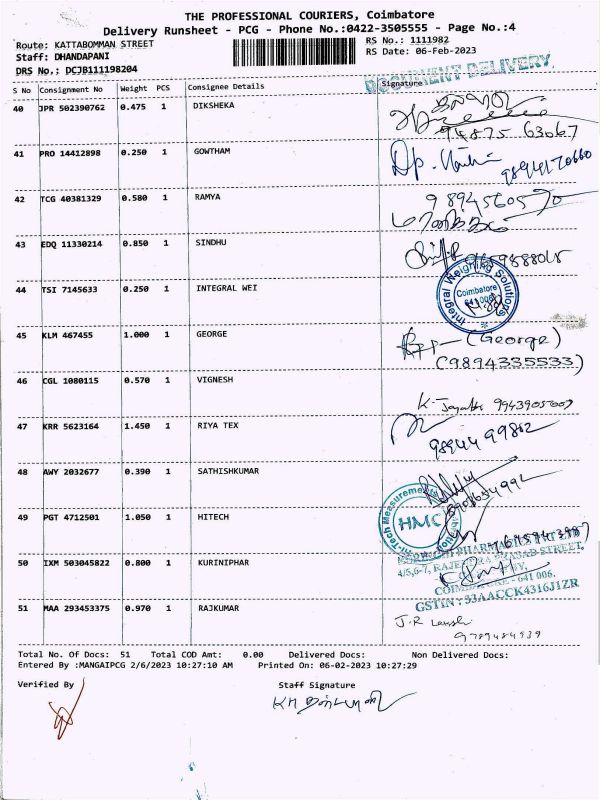 THE PROFESSIONAL COURIERS, Coimbatore
Delivery Runsheet - PCG - Phone No.:0422-3505555 - Page No.:4
Route: KATTABOMMAN STREET
RS No.: 1111982
Staff: DHANDAPANI
RS Date: 06-Feb-2023
DRS No.: DCJB111198204
DOCUMENT DELIVERY
S No Consignment No Weight PCS Consignee Details Signature
40 JPR 502390762 0.475 1 DIKSHEKA
94875 63067
41 PRO 14412898 0.250 1 GOWTHAM
42 TCG 40381329 0.580 1 RAMYA
43 EDQ 11330214 0.850 1 SINDHU
44 TSI 7145633 0.250 1 INTEGRAL WEI
Integral Weighing Solutions
Coimbatore
641 006
45 KLM 467455 1.000 1 GEORGE
(George)
(9894335533)
46 CGL 1080115 0.570 1 VIGNESH
K. 9943905607
47 KRR 5623164 1.450 1 RIYA TEX
98944 99862
48 AWY 2032677 0.390 1 SATHISHKUMAR
49 PGT 4712501 1.050 1 HITECH
Hi-Tech Measurements
HMC
50 IXM 503045822 0.800 1 KURINIPHAR
COIMBATORE - 641 006.
GSTIN : 33AACCK4316J1ZR
51 MAA 293453375 0.970 1 RAJKUMAR
J.R
9789484939
Total No. Of Docs: 51 Total COD Amt: 0.00 Delivered Docs: Non Delivered Docs:
Entered By :MANGAIPCG 2/6/2023 10:27:10 AM Printed On: 06-02-2023 10:27:29
Verified By Staff Signature